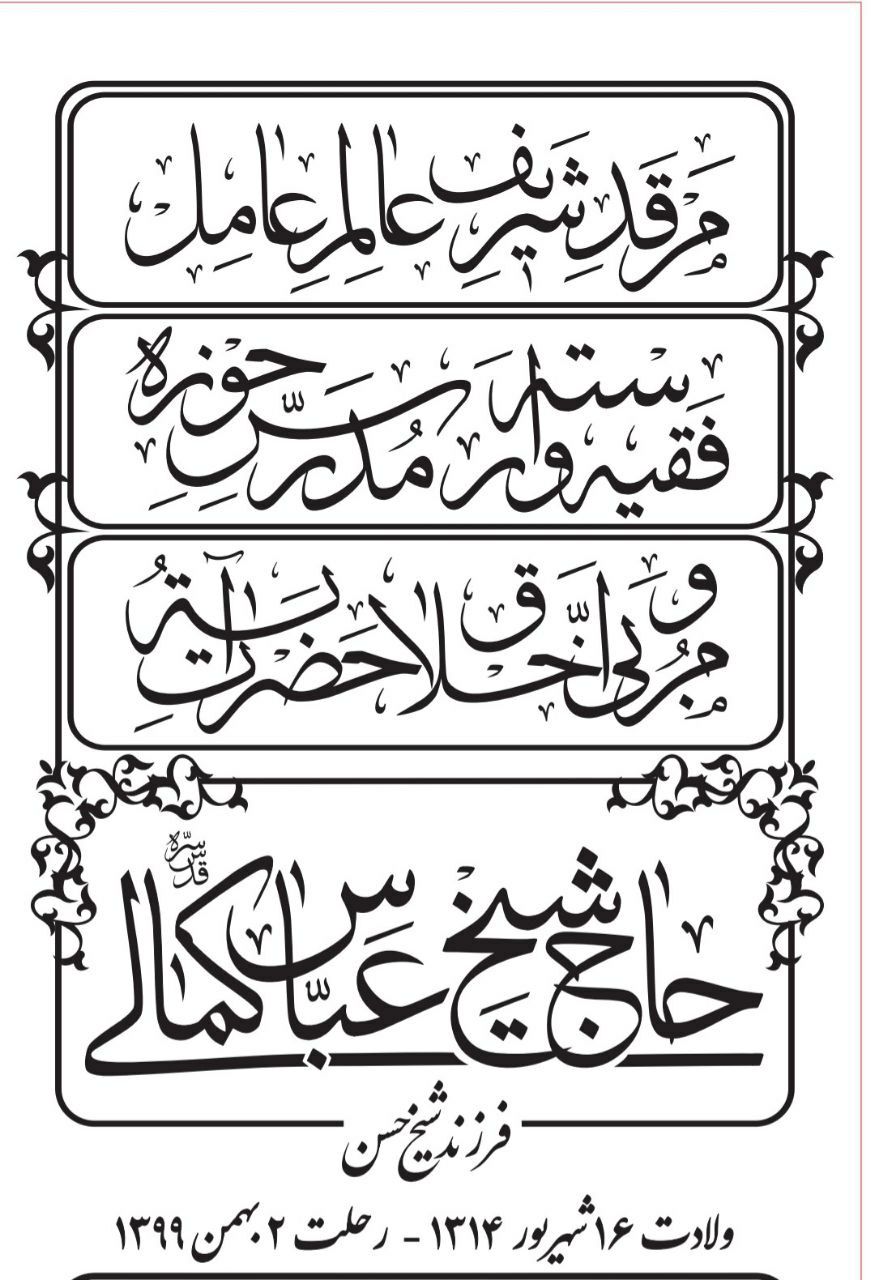 مرقد شریف عالم عامل
فقیه وارسته مدرّس حوزه
و مربّی اخلاق حضرت آیة
حاج شیخ عبّاس کمالی قدّس سرّه
فرزند شیخ حسن
ولادت ۱۶ شهریور ۱۳۱۴ - رحلت ۲ بهمن ۱۳۹۹